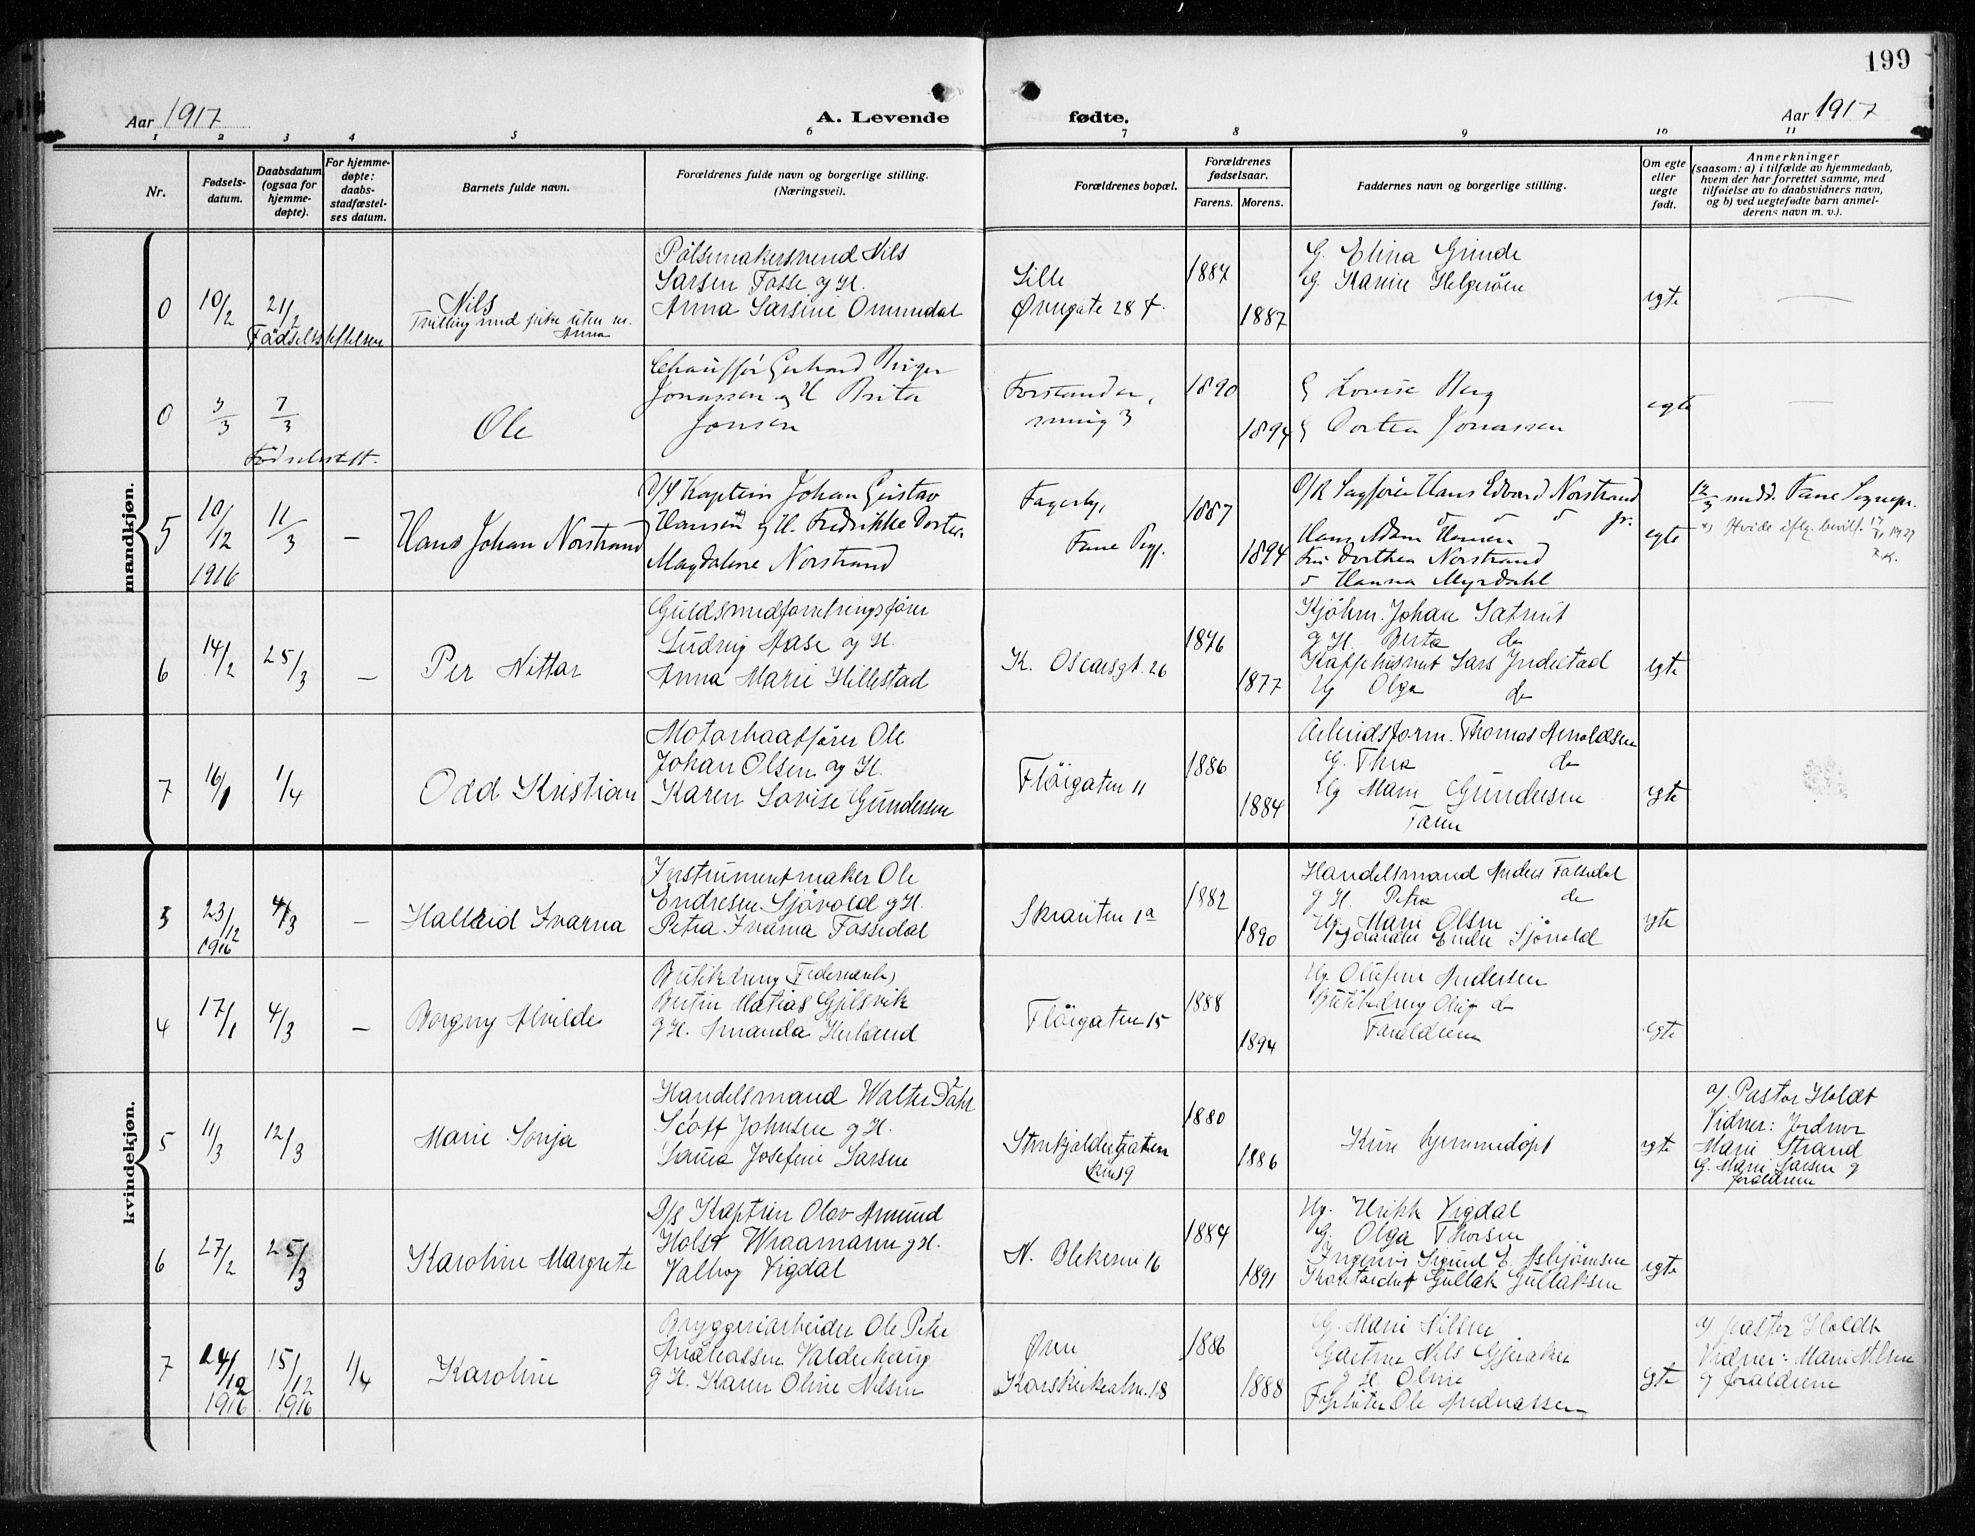 199
Aar 1917
A. Levende
fødte.
Aar 1917
1 2 3 4 5 6 7 8 9 10 11
Nr.
Fødsels-
datum.
Daabsdatum
(ogsaa for
hjemme-
døpte).
For hjemme-
døpte:
daabs-
stadfæstel-
ses datum.
Barnets fulde navn.
Forældrenes fulde navn og borgerlige stilling.
(Næringsvei).
Forældrenes bopæl.
Forældrenes
fødselsaar.
Farens. Morens.
Faddernes navn og borgerlige stilling.
Om egte
eller
uegte
født.
Anmerkninger
(saasom: a) i tilfælde av hjemmedaab,
hvem der har forrettet samme, med
tilføielse av to daabsvidners navn,
og b) ved uegtefødte barn anmel-
derens navn m. v.).
mandkjøn.
0 10/2 21/2
Fødselsstiftelsen
Nils
Tvilling med pike uten nr.
Anna
Pølsemakersvend Nils
Larsen Fosse og H.
Anna Larsine Ommdal
Lille
Øvregate 28 f.
1884
1887
G. Elina Grinde
G. Karine Helgesen
egte
—
0 7/3 7/3
Fødselsstift.
Ole
Chauffør Gerhard Birger
Jonassen og H Brita
Jonsen
Forstander,
smug 3
1890
1894
G Lovise Berg
G Dortea Jonassen
egte
—
5 10/12 1916 11/3 —
Hans Johan Norstrand
D/S Kaptein Johan Gustav
Hansen x) og H. Fredrikke Dortea
Magdalene Norstrand
Fagerby,
Fane Pgj.
1887
1894
O/R Sagfører Hans Edvard Norstrand
jr.
Hans Adam Hansen
Fru Dorthea Norstrand
" Hanna Myrdahl
egte
12/3 medd. Fane Sognepr.
x) Hvide iflg. bevilg. 1927
6 14/2 25/3 —
Per Nittar
Guldsmedforretningsfører
Ludvig Aase og H.
Anna Marie Hillestad
K. Oscarsgt. 26
1876
1877
Kjøbm. Johan
g H. Berta do
Kaffehusvert Lars
Ug Olga do
egte
7 16/1 1/4
Odd Kristian
Motorbaatfører Ole
Johan Olsen og H.
Karen Lovise Gundersen
Fløigaten 11
1886
1884
Arbeidsform. Thomas Arnoldsen
G. Thea do
Ug Marie Gundersen
Faren
egte
kvindekjøn.
3 23/12 1916 4/3 —
Hallaid Ivarna
Instrumentmaker Ole
Endresen Sjövold g H.
Petra Ivarna Fossedal
Skranten 1a
1882
1890
Handelsmand Anders Fossedal
g H. Petra do
Ug. Marie Olsen
Endre Sjövold
egte
4 17/1 4/3 —
Borgny Alvilde
Butikdreng
Bertin Matias Gjilsvik
g H. Amanda Herland
Fløigaten 15
1888
1894
Ug. Olufine Andersen
Butikdreng Oluf do
Forældrene
egte
5 11/3 12/3
Marie Sonja
Handelsmand Walter Dahl
Scott Johnsen g H.
Laura Josefine Larsen
Stenkjeldergaten
1880
1886
Kun hjemmedøpt
egte
af Pastor Holdt
Vidner: Jordmor
Marie Strand
G. Marie Larsen g
forældrene
6 27/2 25/3
Karoline Margrete
D/s Kaptein Olav Amund
Holst Wraamann g H.
Valborg Vigdal
N. Blekevei 16
1884
1891
Ug. Henrik Vigdal
G. Olga Thorsen
Ingeniør Sigurd E. Asbjørnsen
Gullak Gullaksen
egte
7 24/12 1916 15/12 1916 1/4
Karoline
Bryggeriarbeider Ole Peter
Andreassen Valderhaug
g H. Karen Oline Nilsen
Øvre
Korskirkealm. 18
1886
1888
G. Marie Nilsen
Gartner Nils Gjeraker
g H. Oline
Fyrbøter Ole Andreassen
egte
af pastor Holdt
Vidner: Marie Nilsen
g forældrene